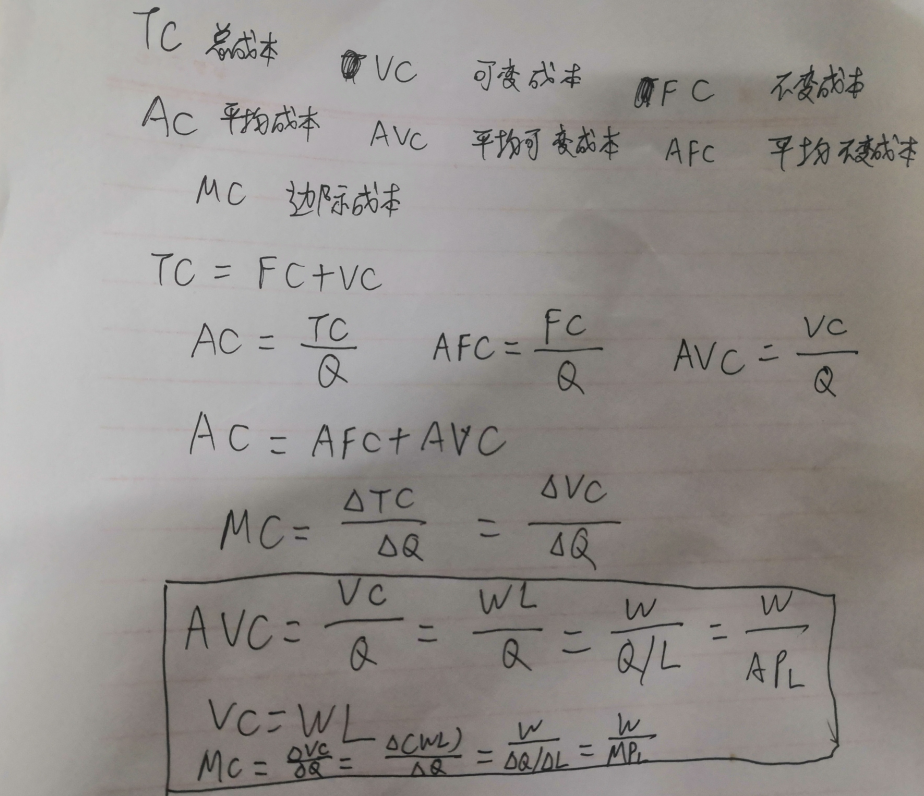 TC 总成本 VC 可变成本 FC 不变成本
AC 平均成本 AVC 平均可变成本 AFC 平均不变成本
MC 边际成本
TC = FC+VC
AC = TC/Q AFC = FC/Q AVC = VC/Q
AC = AFC+AVC
MC = ΔTC/ΔQ = ΔVC/ΔQ
AVC = VC/Q = WL/Q = W/(Q/L) = W/AP_L
VC=WL
MC = ΔVC/ΔQ = Δ(WL)/ΔQ = W/(ΔQ/ΔL) = W/MP_L